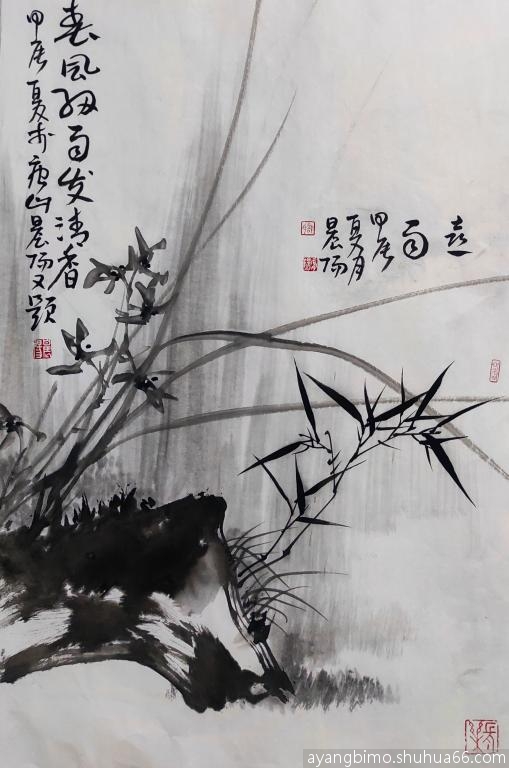 喜雨
甲辰
夏月
晨阳
春风细雨发清香
甲辰夏于唐山晨阳又题
ayangbimo.shuhua66.com